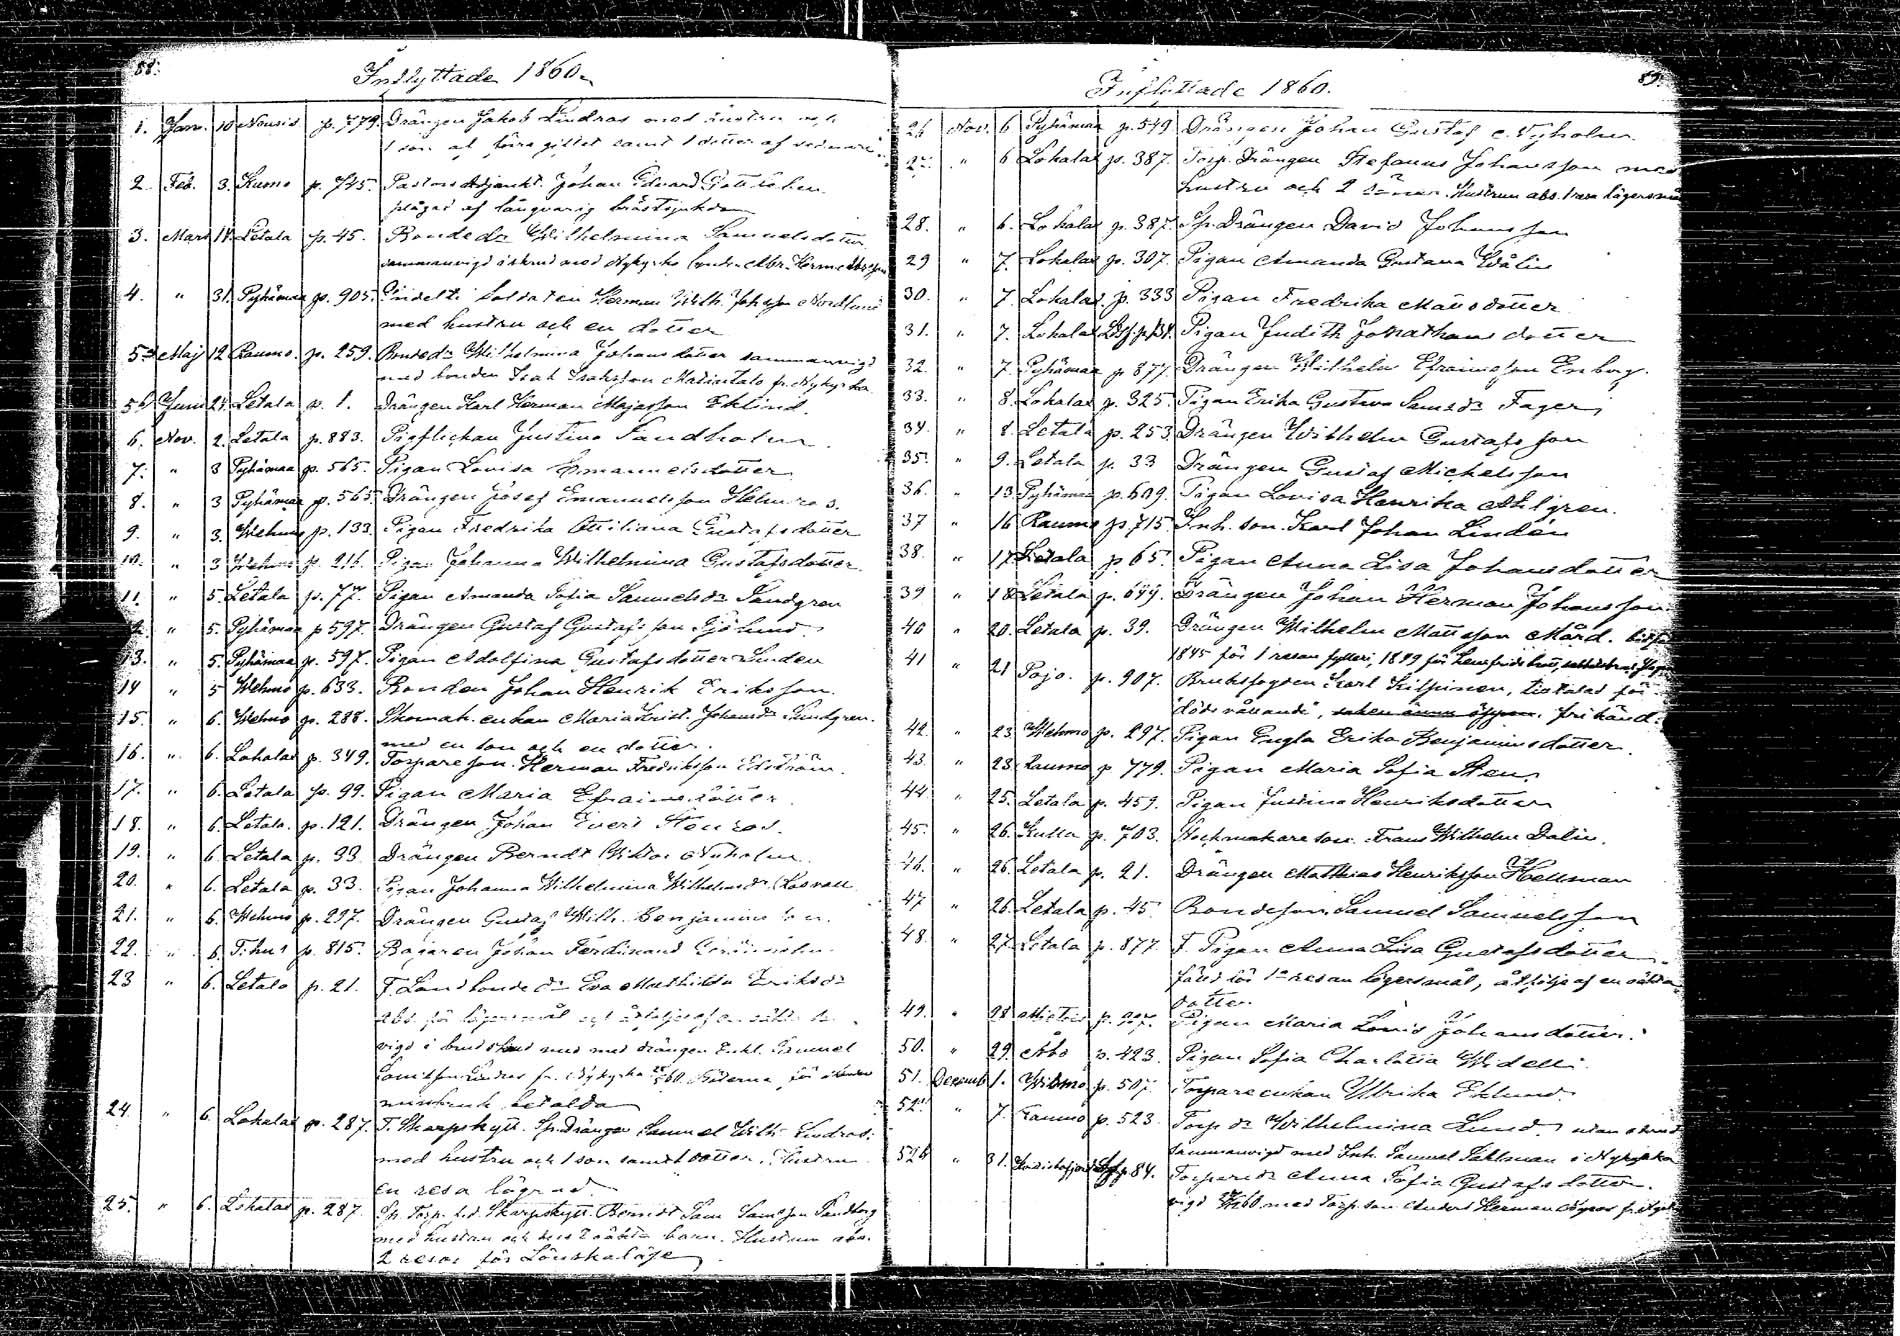 88.
Inflyttade 1860.
1. Jan. 10 Nousis p. 779. Drängen Jakob Lindros med hustru och
1 son af förra giftet samt 1 dotter af sednare
2. Feb. 3. Kumo p. 745. Pastors Adjunkt. Johan Edvard
plågad af långvarig bröstsjukdom
3. Mars 14. Letala p. 45. Bonded:r Wilhelmina Samuelsdotter
sammanvigd med Nykyrko bonden Abr.
4. " 31. Pyhämaa p. 905. Indelte Soldaten Herman Wilh. Johsson Nordlund
med hustru och en dotter
5a Maj 12 Raumo. p. 259. Bonded:r Wilhelmina Johansdotter sammanvigd
med bonden Isak Isaksson Matintalo fr. Nykyrka
5b. Juni 24. Letala p. 1. Drängen Karl Herman Majasson Eklund.
6. Nov. 2. Letala p. 883. Pigflickan Justina Sandholm.
7. " 3 Pyhämaa p. 565. Pigan Lovisa Emanuelsdotter
8. " 3 Pyhämaa p. 565. Drängen Josef Emanuelsson Helenros.
9. " 3. Wehmo p. 133. Pigan Fredrika Ottiliana Gustafsdotter
10. " 3 Wehmo p. 216. Pigan Johanna Wilhelmina Gustafsdotter
11. " 5. Letala p. 77. Pigan Amanda Sofia Samuelsd:r Sandgren
12. " 5. Pyhämaa p. 597. Drängen Gustaf Gustafsson Sjölund.
13. " 5. Pyhämaa p. 597. Pigan Adolfina Gustafsdotter Linden
14 " 5 Wehmo p. 633. Bonden Johan Henrik Eriksson.
15. " 6. Wehmo p. 288. Skomak. enkan Maria Krist. Johansd:r Sundgren.
med en son och en dotter.
16. " 6. Lokalax p. 349. Torpareson. Herman Fredriksson Edström.
17. " 6. Letala p. 99. Pigan Maria Efraimsdotter
18. " 6. Letala. p. 121. Drängen Johan Evert Stenros.
19. " 6. Letala p. 33. Drängen Berndt Wiktor Nyholm.
20. " 6. Letala p. 33. Pigan Johanna Wilhelmina Wilhelmsd:r
21. " 6. Wehmo p. 297. Drängen Gustaf Wilh. Benjaminsson.
22. " 6. T:hus p. 815. Bagaren Johan Ferdinand
23 " 6. Letala p. 21. F. Landbonded:r Eva Mathilda Eriksd:r
abs. för lägersmål och åtföljes af en
vigd i brudskrud med drängen Enkl. Samuel
Lindros fr. Nykyrka 60. Böterna för
missbruk betalda
24. " 6. Lokalax p. 287. F. Skarpskytt. Sp. Drängen Samuel Wilh. Lindros.
med hustru och 1 son samt 1 dotter. Hustru
en resa lägrad.
25. " 6. Lokalax p. 287. Sp. Torp. f.d. Skarpskytt. Berndt Sam. Samsson Sandberg
med hustru och 2 oäkta barn. Hustrun abs.
2 resor för Lönskaläge
89.
Inflyttade 1860.
26 Nov. 6 Pyhämaa p. 549 Drängen Johan Gustaf Nyholm.
27. " 6 Lokalax p. 387. Torp. Drängen Stefanus Johansson med
hustru och 2 söner. Hustrun abs. 1 resa lägersmål
28. " 6. Lokalax p. 387. Sp. Drängen David Johansson
29 " 7. Lokalax p. 307. Pigan Amanda Gustava Wålin
30. " 7. Lokalax p. 333 Pigan Fredrika Mattsdotter
31. " 7. Lokalax Pigan Judith Jonathansdotter
32. " 7. Pyhämaa p. 877. Drängen Wilhelm Efraimsson Enberg.
33. " 8. Lokalax p. 325. Pigan Erika Gustava Samsd:r Fager
34. " 8. Letala p. 253. Drängen Wilhelm Gustafsson
35. " 9. Letala p. 33 Drängen Gustaf Michelsson
36. " 13. Pyhämaa p. 609. Pigan Lovisa Henrika Ahlgren.
37 " 16 Raumo p. 715 Inh. son. Karl Johan Lindén
38. " 17. Letala p. 65. Pigan Anna Lisa Johansdotter
39 " 18. Letala p. 649. Drängen Johan Herman Johansson.
40 " 20. Letala p. 39. Drängen Wilhelm Mattsson Mård.
1845 för 1 resan fylleri, 1849 för hemfridsbrott,
41 " 21 Pojo. p. 907. Bruksfogden Karl Kilpinen, tilltalad för
dödsvållande, saken ännu öppen. frikänd.
42. " 23. Wehmo p. 297. Pigan Engla Erika Benjaminsdotter.
43. " 23. Raumo p. 779. Pigan Maria Sofia Sten.
44. " 25. Letala p. 459. Pigan Justina Henriksdotter
45. " 26. p. 703. Frans Wilhelm Dalin.
46. " 26. Letala p. 21. Drängen Matthias Henriksson Hellman
47 " 26. Letala p. 45. Bondeson. Samuel Samuelsson
48. " 27. Letala p. 877. F. Pigan Anna Lisa Gustafsdotter.
fälld för 1:a resan lägersmål, åtföljs af en oäkta
dotter.
49. " 28. Mietois p. Pigan Maria Lovis Johansdotter.
50. " 29. Åbo p. 423. Pigan Sofia Charlotta Widell.
51. Decemb 1. Wehmo p. 507. Torpareenkan Ulrika Eklund
52a " 7. Raumo p. 523. Torp. d:r Wilhelmina Lund. utan skrud
sammanvigd med Inh. Samuel Sahlman i Nykyrka
52b " 31. p. 84. Torpared:r Anna Sofia Gustafsdotter.
vigd 60 med Torp. son. Anders Herman fr. Nyk.